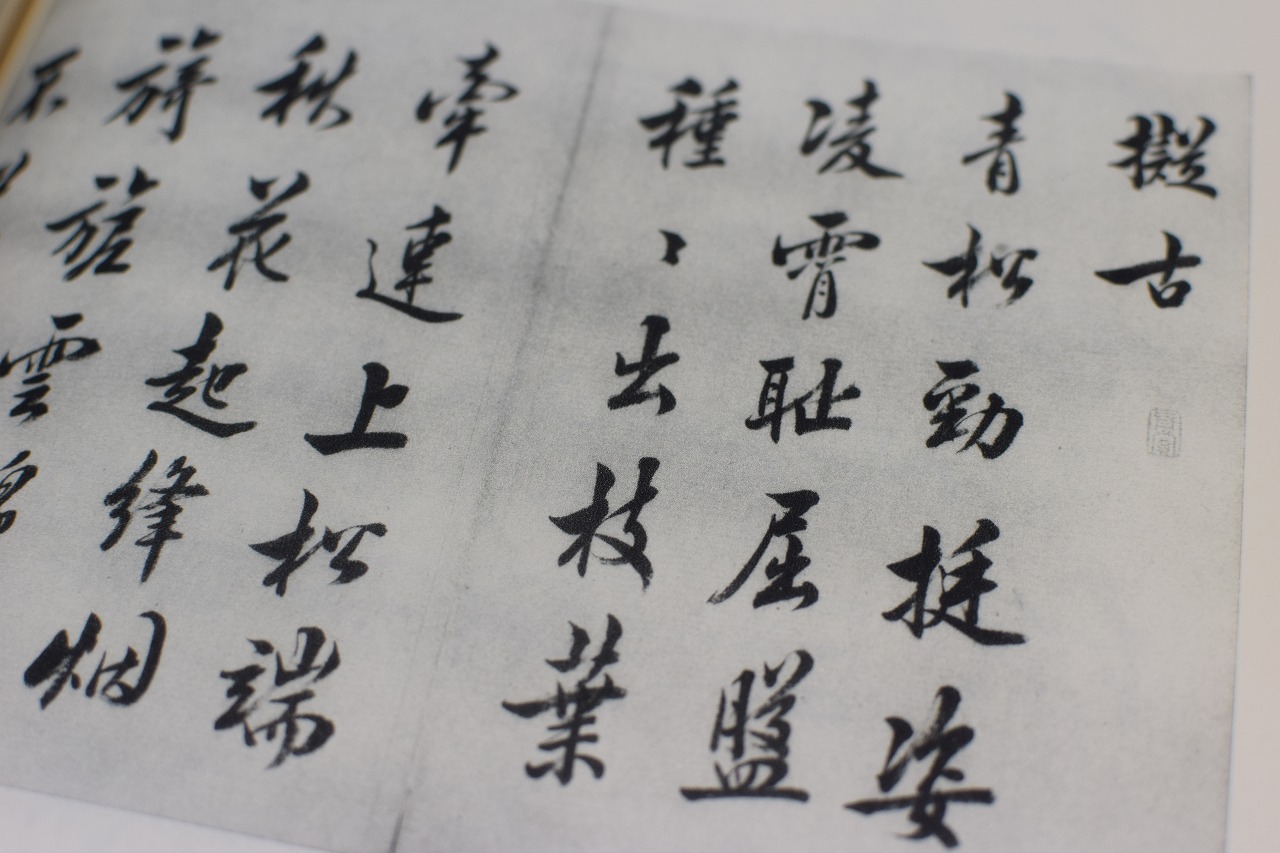 擬古
青松勁挺姿
凌霄耻屈盤
種〻出枝葉
牽連上松端
秋花起絳烟
旖旎雲
不